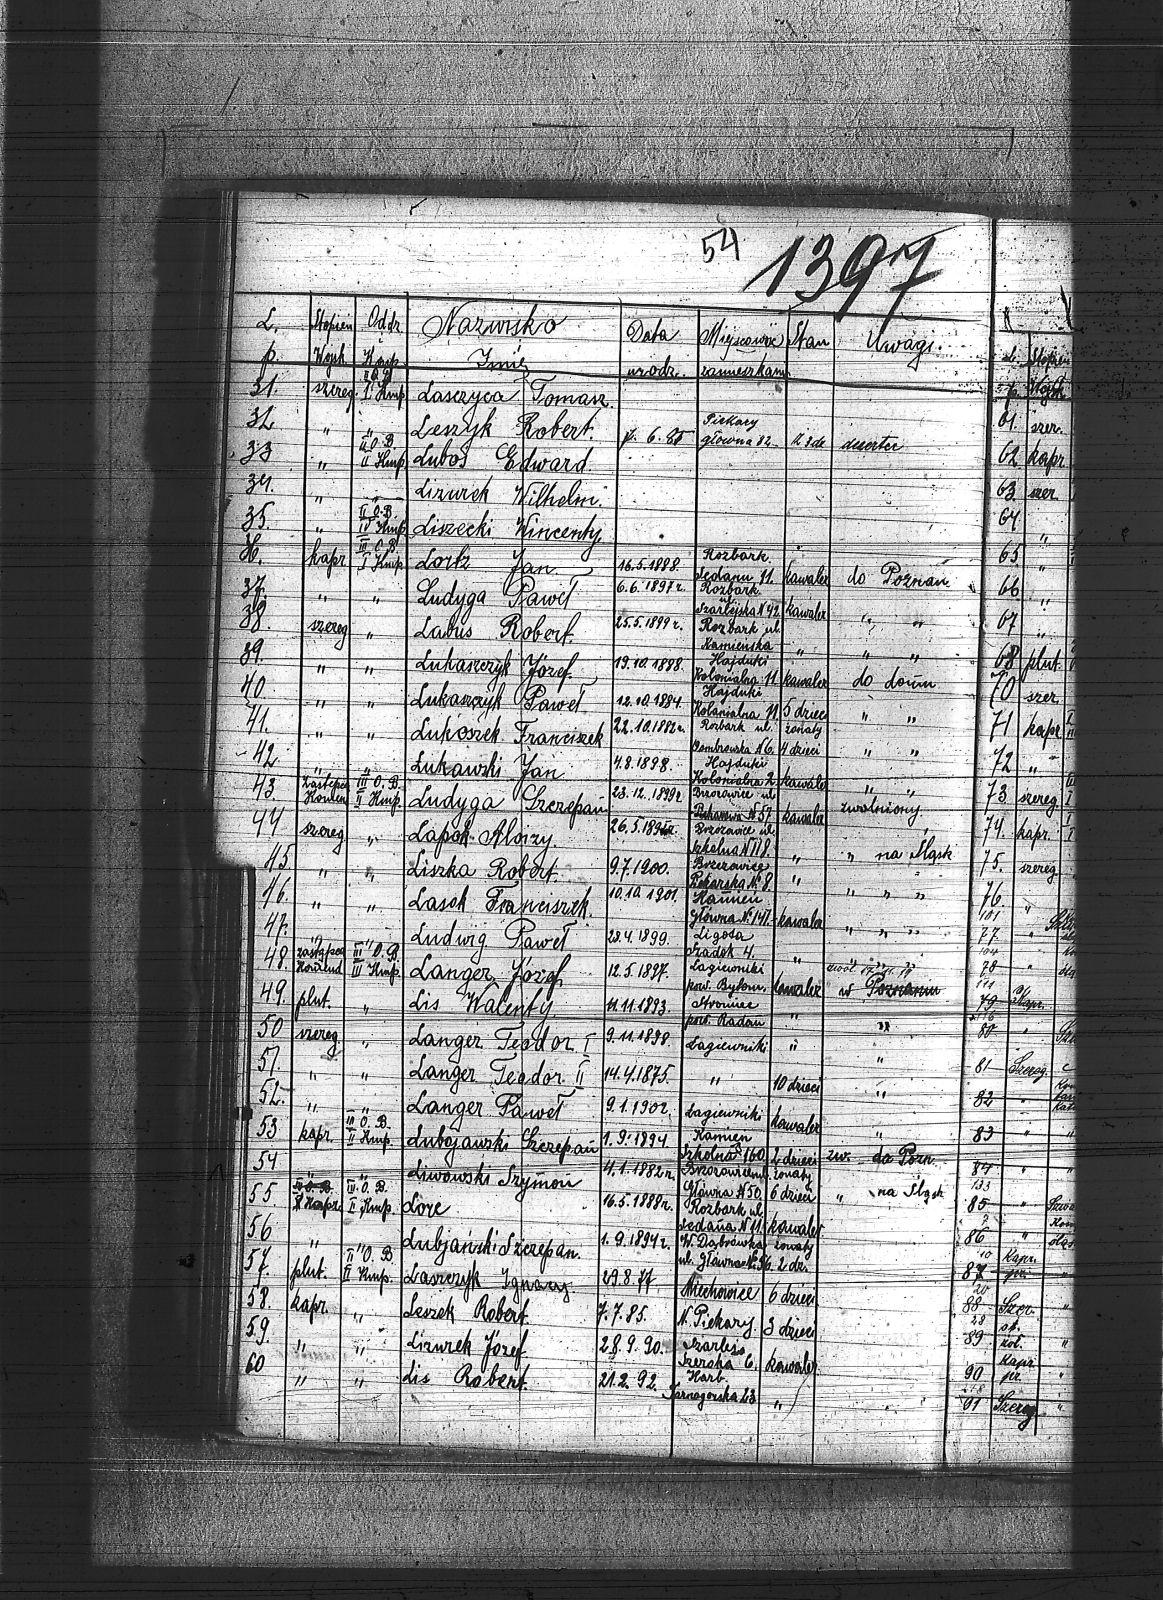 54
1397
L. p. Stopień Wojsk. Oddz. Komp. Nazwisko Imię Data urodz. Miejscowość zamieszkania Stan Uwagi.
31 szereg. II O.B. I Kmp. Lasczyca Tomasz
32 " " Leszyk Robert. 6. 85 Piekary główna 82. deserter
33 " II O.B. II Kmp. Lubos Edward
34. " " Lizurek Wilhelm.
35. " II O.B. IV Kmp. Liszecki Wincenty
kapr. III O.B. I Kmp. Lortz Jan 16.5.1888. Rozbark Sedanu 11. kawaler do Poznań
37. " " Ludyga Paweł 6.6.1897r. Rozbark ul. Szarlejska N 42. kawaler " "
38. szereg " Labus Robert. 25.5.1899r. Rozbark ul. Kamieńska " " "
39. " " Lukaszczyk Józef. 19.10.1898. Hajduki Kolonialna 11. kawaler do domu
40 " " Lukaszczyk Paweł 12.10.1884. Hajduki Kolonialna 11. 5 dzieci " "
41. " " Lukoszek Franciszek 22.10.1882r. Rozbark ul. Dombrowska N 6. żonaty 4 dzieci " "
42 " " Lukawski Jan 4.8.1898. Hajduki Kolonialna 2. kawaler " "
43 zastępca III O.B. II Kmp. Ludyga Szczepan 23.12.1899r. Brzozowice ul. Piekarska N 57 kawaler zwolniony
44 szereg " Lapok Aloizy 26.5. Brzozowice ul. Szkolna N 118. " " na Śląsk
45 " " Liszka Robert. 9.7.1900. Brzozowice Piekarska N 8. " " " "
46 " " Lasok Franciszek. 10.10.1901. Kamień Główna N 141. kawaler
47. " " Ludwig Paweł 28.4.1899. Ligota Szadok 4. " " " "
48. zastępca III O.B. III Kmp. Langer Józef 12.5.1897. Łagiewniki pow. Bytom. kawaler w Poznaniu
49. plut. " Lis Walenty 11.11.1893. Stromiec pow. Radom " "
50 szereg. " Langer Teodor I 9.11.1898. Łagiewniki " "
51. " " Langer Teodor II 14.4.1875. " 10 dzieci "
52. " " Langer Paweł 9.1.1902. Łagiewniki kawaler "
53 kapr. III O.B. II Kmp. Lubojawski Szczepan 1.9.1894 Kamień Szkolna 160. 2 dzieci zw. do Pozn.
54 " " Liwowski Szymon 4.1.1882r. Brzozowice Główna N 50. żonaty 6 dzieci " na Śląsk
55 IV O.B. I Kmp. Lorc 16.5.1888r. Rozbark ul. Sedana N 11. kawaler
56 " Lubjański Szczepan. 1.9.1894r. W. Dąbrówka ul. Główna N 56. żonaty 2 dzi.
57. plut. II O.B. II Kmp. Laszczyk Ignacy 29.8.77 Miechowice 6 dzieci
58. kapr. " Leszek Robert. 7.7.85. N. Piekary. 3 dzieci
59. " " Lizurek Józef 28.9.90. Szarlej Szerska 6. kawaler
60 " " Lis Robert. 21.2.92. Karb. Tarnogorska 23 "
L. p. Stopień Wojsk
61. szer.
62 kapr.
63. szer.
64 "
65 "
66 "
67 "
68 plut.
70 szer.
71 kapr.
72 "
73. szereg
74. kapr.
75. szereg
76. "
101
77. "
104
78 "
111
79 kapr.
80 "
81 Szereg.
82 "
83 "
84 "
133
85 "
86 "
87 kapr.
20
88 Szer.
28
89
90 kapr.
91 Szereg